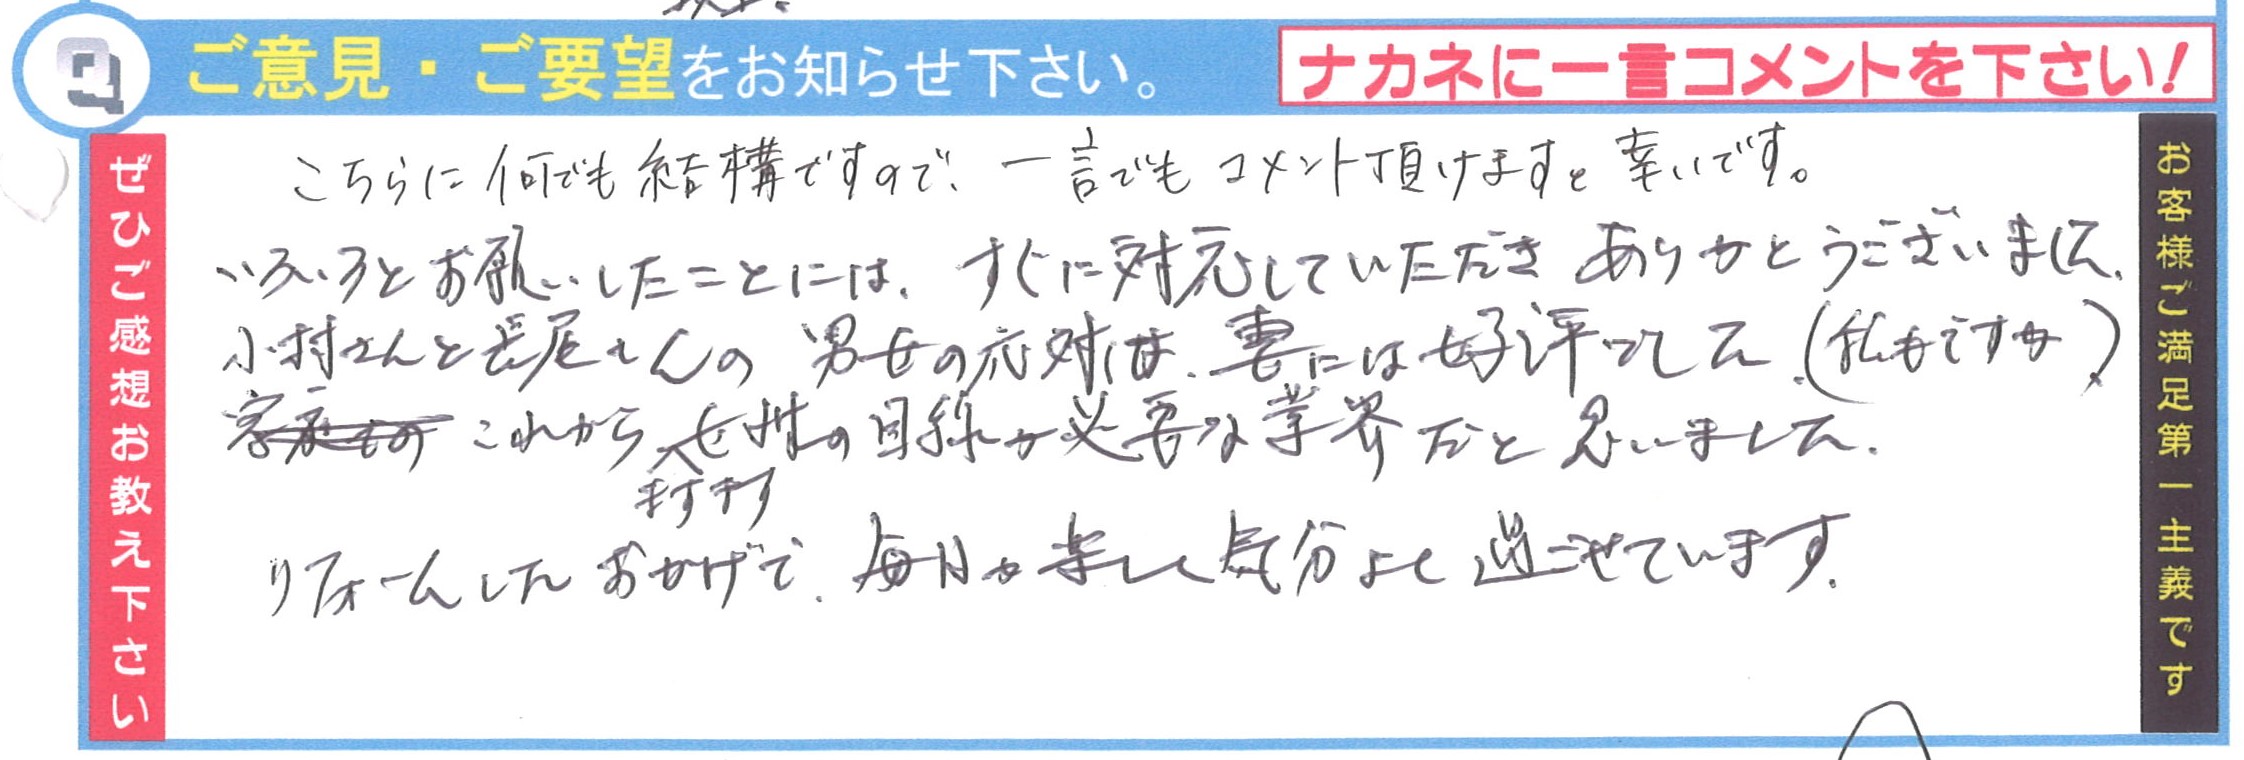 Q ご意見・ご要望をお知らせ下さい。
ナカネに一言コメントを下さい!
ぜひご感想お教え下さい
こちらに何でも結構ですので、一言でもコメント頂けますと幸いです。
いろいろとお願いしたことには、すぐに対応していただきありがとうございました。
小村さんと長尾さんの男女の応対は、妻には好評でした。(私もですが)
これから女性の目線が必要な業界だと思いました。
ますます
リフォームしたおかげで、毎日が楽しく気分よく過ごせています。
お客様ご満足第一主義です